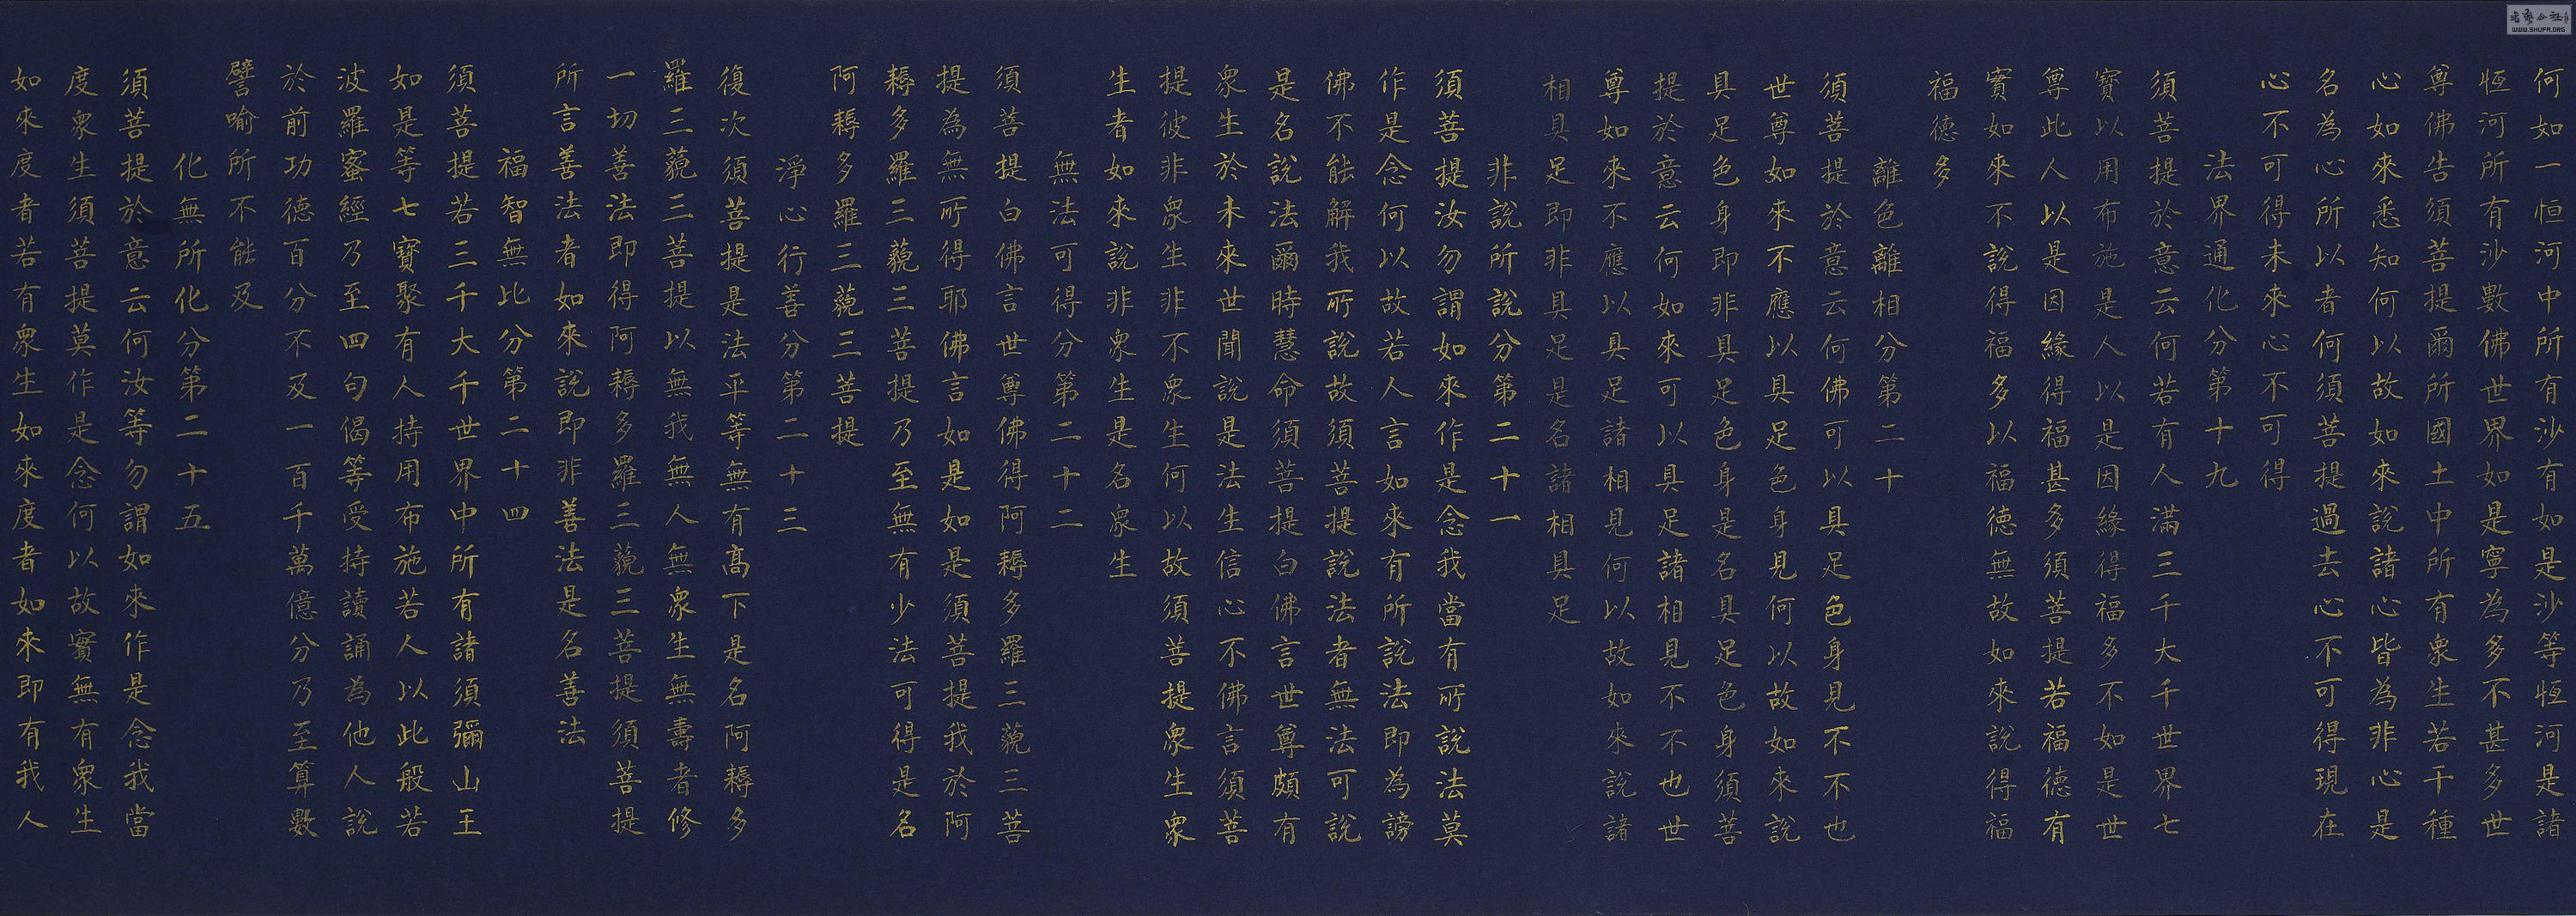 何如一恒河中所有沙有如是沙等恒河是諸
恒河所有沙數佛世界如是寧為多不甚多世
尊佛告須菩提爾所國土中所有眾生若干種
心如來悉知何以故如來說諸心皆為非心是
名為心所以者何須菩提過去心不可得現在
心不可得未來心不可得
法界通化分第十九
須菩提於意云何若有人滿三千大千世界七
寶以用布施是人以是因緣得福多不如是世
尊此人以是因緣得福甚多須菩提若福德有
實如來不說得福多以福德無故如來說得福
福德多
離色離相分第二十
須菩提於意云何佛可以具足色身見不不也
世尊如來不應以具足色身見何以故如來說
具足色身即非具足色身是名具足色身須菩
提於意云何如來可以具足諸相見不不也世
尊如來不應以具足諸相見何以故如來說諸
相具足即非具足是名諸相具足
非說所說分第二十一
須菩提汝勿謂如來作是念我當有所說法莫
作是念何以故若人言如來有所說法即為謗
佛不能解我所說故須菩提說法者無法可說
是名說法爾時慧命須菩提白佛言世尊頗有
眾生於未來世聞說是法生信心不佛言須菩
提彼非眾生非不眾生何以故須菩提眾生眾
生者如來說非眾生是名眾生
無法可得分第二十二
須菩提白佛言世尊佛得阿耨多羅三藐三菩
提為無所得耶佛言如是如是須菩提我於阿
耨多羅三藐三菩提乃至無有少法可得是名
阿耨多羅三藐三菩提
淨心行善分第二十三
復次須菩提是法平等無有高下是名阿耨多
羅三藐三菩提以無我無人無眾生無壽者修
一切善法即得阿耨多羅三藐三菩提須菩提
所言善法者如來說即非善法是名善法
福智無比分第二十四
須菩提若三千大千世界中所有諸須彌山王
如是等七寶聚有人持用布施若人以此般若
波羅蜜經乃至四句偈等受持讀誦為他人說
於前功德百分不及一百千萬億分乃至算數
譬喻所不能及
化無所化分第二十五
須菩提於意云何汝等勿謂如來作是念我當
度眾生須菩提莫作是念何以故實無有眾生
如來度者若有眾生如來度者如來即有我人
WWW.SHUFA.ORG